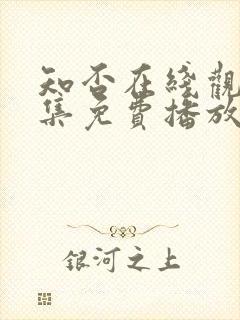 知否在綫觀
集免費播放
銀河之上